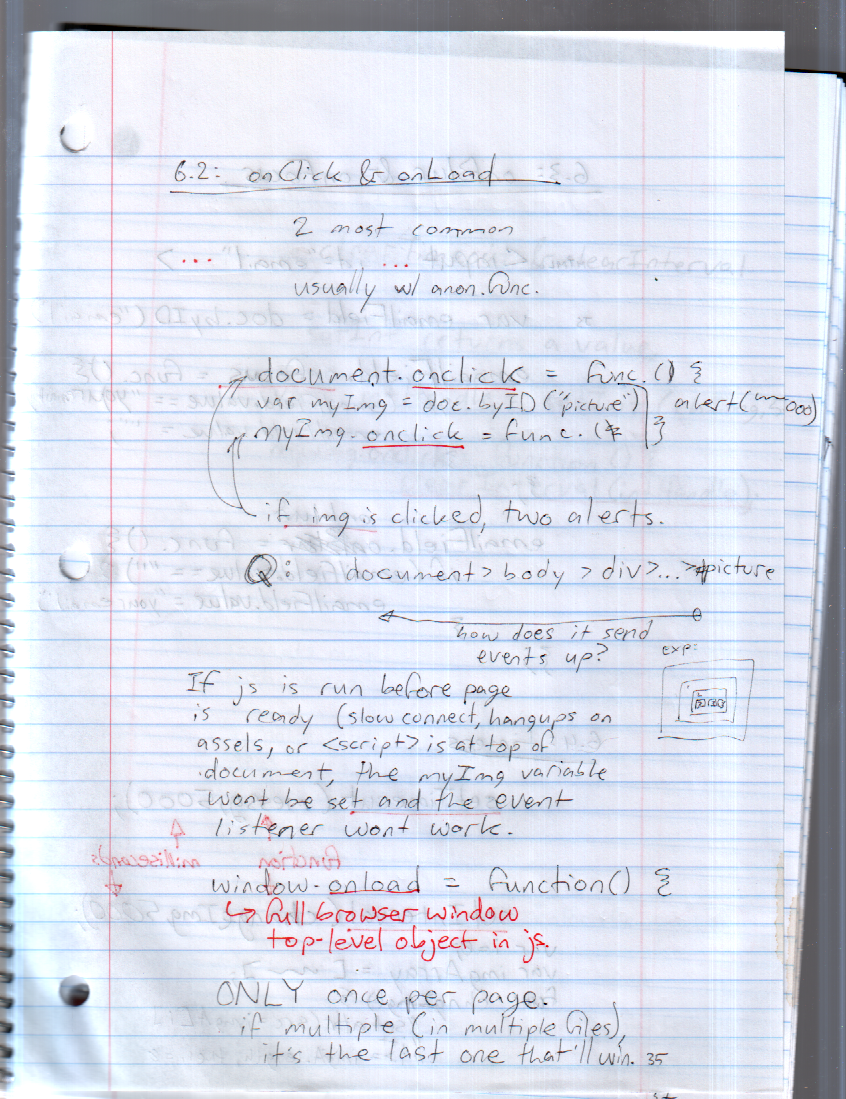 6.2: onClick & onLoad
2 most common
usually w/ anon. func.
document.onclick = func.() {
var myImg = doc.byID("picture")
alert( ooo)
myImg.onclick = func. ( }
if img is clicked, two alerts.
Q: document > body > div > ... > picture
how does it send
events up?
exp:
If js is run before page
is ready (slow connect, hangups on
assels, or <script> is at top of
document, the myImg variable
wont be set and the event
listener wont work.
window.onload = function() {
↳ full browser window
top-level object in js.
ONLY once per page.
if multiple (in multiple files),
it's the last one that'll win. 35